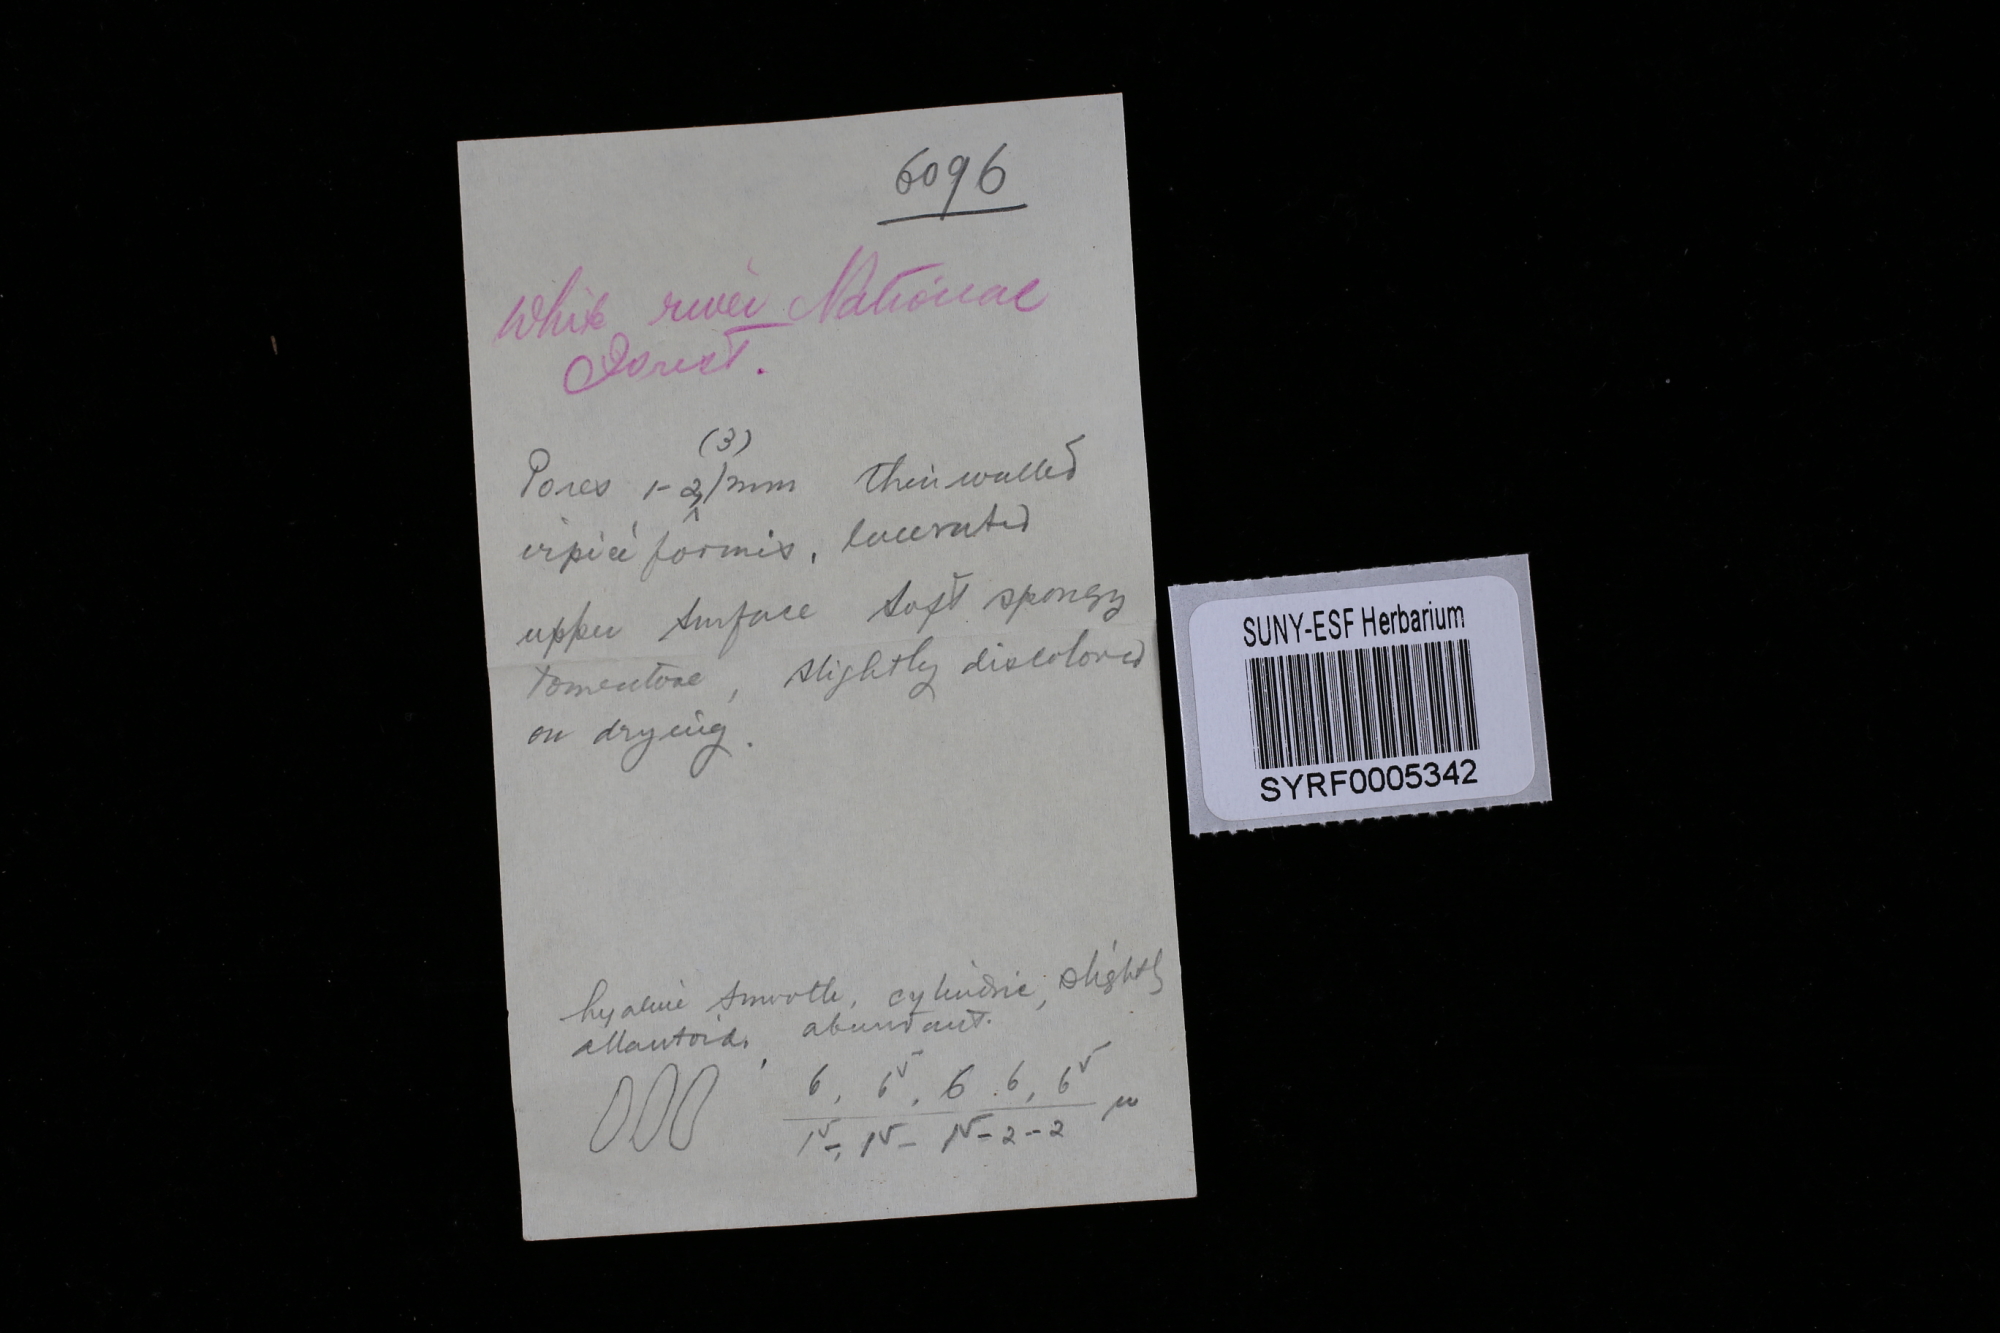 6096
White river National
Forest.
(3)
Pores 1-2/mm thin walled
irpiciformis, lacerated
upper surface soft spongy
tomentose, slightly discolored
on drying.
hyaline smooth, cylindric, slightly
allantoid, abundant.
6, 6⁵, 6, 6, 6⁵
1⁵-, 1⁵- 1⁵-2-2 μ
SUNY-ESF Herbarium
SYRF0005342